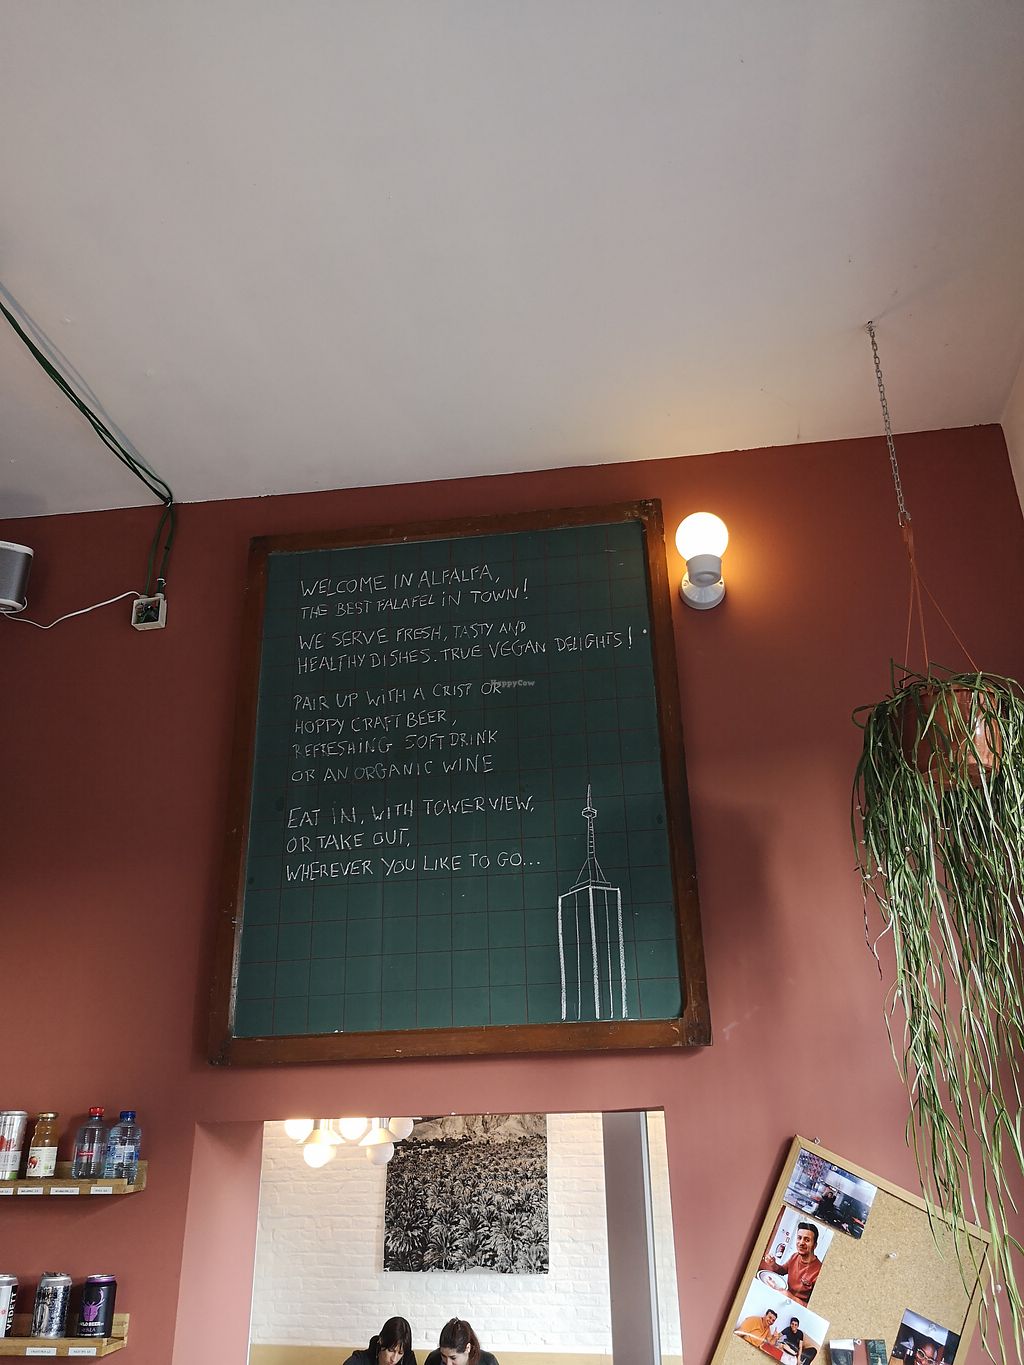 WELCOME IN ALFALFA,
THE BEST FALAFEL IN TOWN!
WE SERVE FRESH, TASTY AND
HEALTHY DISHES. TRUE VEGAN DELIGHTS!
PAIR UP WITH A CRISP OR
HOPPY CRAFT BEER,
REFRESHING SOFT DRINK
OR AN ORGANIC WINE
EAT IN, WITH TOWERVIEW,
OR TAKE OUT,
WHEREVER YOU LIKE TO GO...
HappyCow
VEDETT